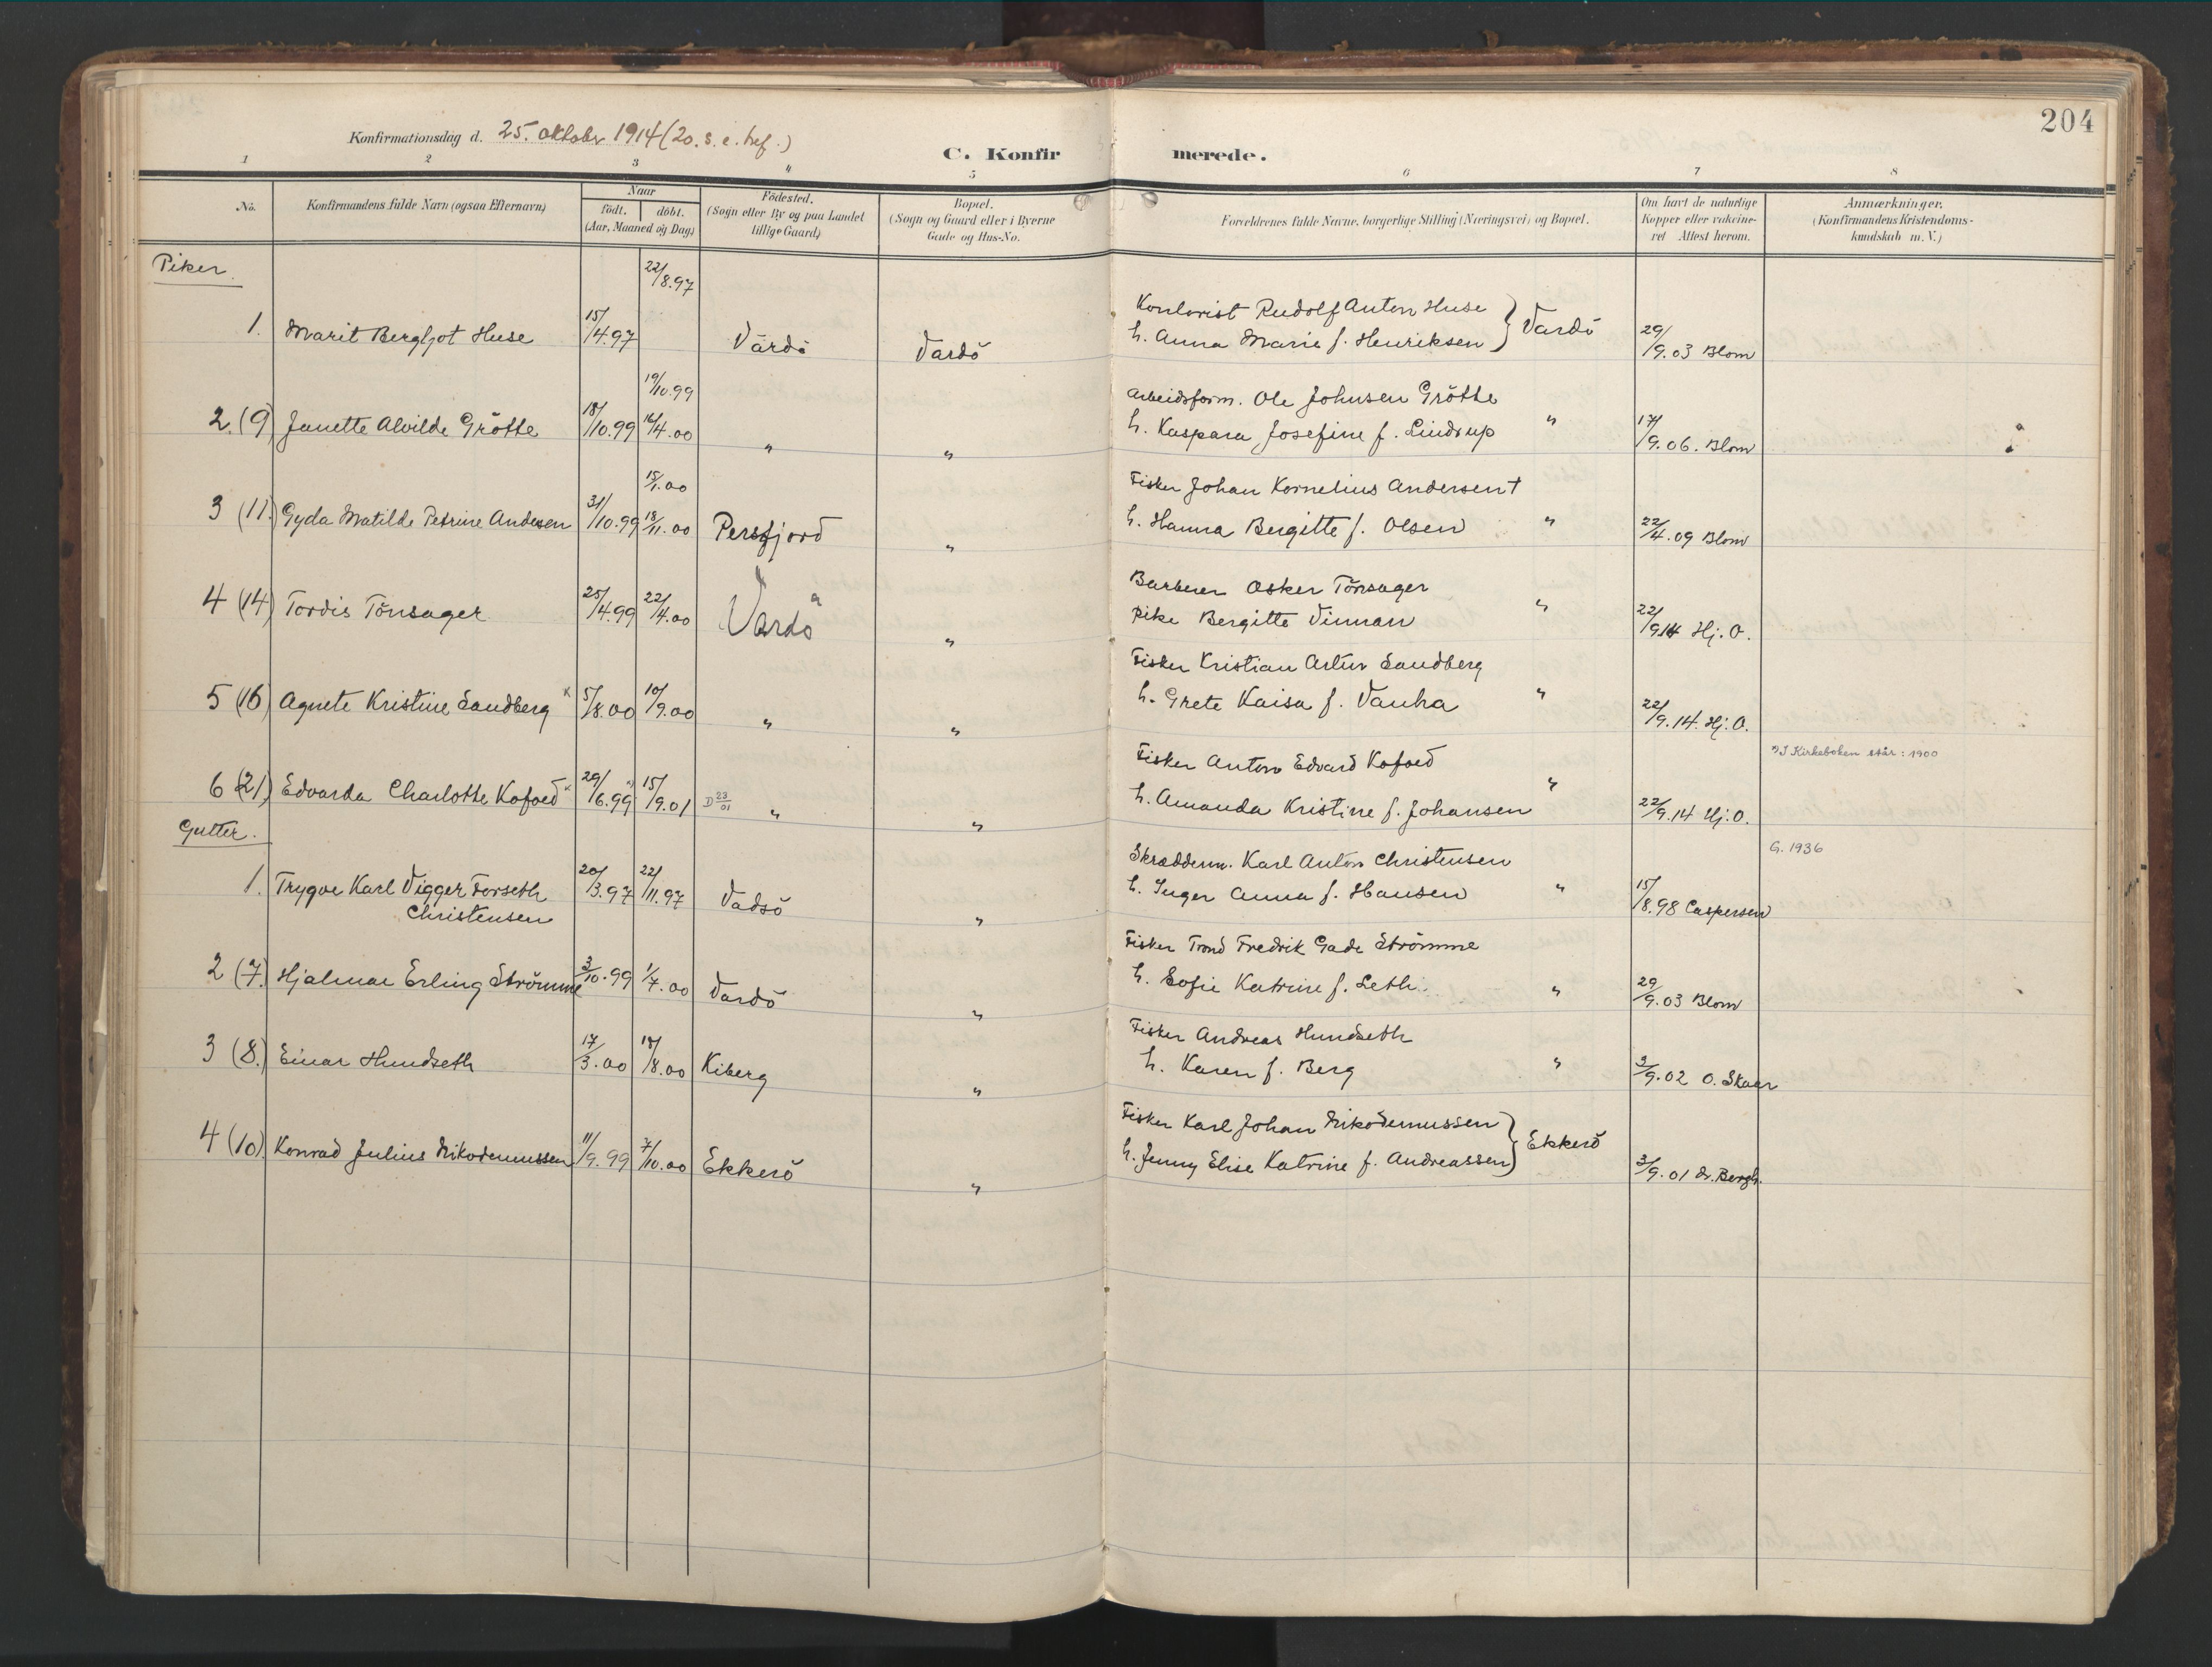 204
Konfirmationsdag d. 25. oktober 1914 (20. s. e. tref.)
C. Konfirmerede.
1 2 3 4 5 6 7 8
No.
Konfirmandens fulde Navn (ogsaa Efternavn)
Naar
födt. döbt.
(Aar, Maaned og Dag)
Födested.
(Sogn eller By og paa Landet
tillige Gaard)
Bopæl.
(Sogn og Gaard eller i Byerne
Gade og Hus-No.
Forældrenes fulde Navne, borgerlige Stilling (Næringsvei) og Bopæl.
Om havt de naturlige
Kopper eller vakcine-
ret Attest herom.
Anmærkninger.
(Konfirmandens Kristendoms-
kundskab m. V.)
Piker.
22/8.97
1. Marit Bergljot Huse 15/4.97 Vardö Vardö
Kontorist Rudolf Anton Huse
h. Anna Marie f. Henriksen } Vardö
29/9.03 Blom
19/10.99
2. (9) Janette Alvilde Grötte 18/10.99 16/4.00 " "
Arbeidsform. Ole Johnsen Grötte
h. Kaspara Josefine f. Lindrup "
17/9.06. Blom
15/1.00
3 (11.) Gyda Matilde Petrine Andersen 31/10.99 18/11.00 Persfjord "
Fisker Johan Kornelius Andersen †
h. Hanna Bergitte f. Olsen "
22/4.09 Blom
4 (14) Tordis Tönsager 25/4.99 22/4.00 Vardö "
Barberer Osker Tönsager
Pike Bergitte Vinnan "
22/9.14 Hj. O.
5 (16) Agnete Kristine Sandberg x 5/8.00 10/9.00 " "
Fisker Kristian Artur Sandberg
h. Grete Kaisa f. Vanha "
22/9.14. Hj. O.
*) I Kirkeboken står: 1900
6 (21) Edvarda Charlotte Kofoed x 29/6.99 *) 15/9.01 D 23/01 " "
Fisker Anton Edvard Kofoed
h. Amanda Kristine f. Johansen "
22/9.14 Hj. O.
Gutter.
G. 1936
1. Trygve Karl Vigger Forseth
Christensen 20/3.97 22/11.97 Vadsö "
Skrædderm. Karl Anton Christensen
h. Inger Anna f. Hansen "
15/8.98 Caspersen
2 (7.) Hjalmar Erling Strömme 3/10.99 1/7.00 Vardö "
Fisker Trond Fredrik Gade Strömme
h. Sofie Katrine f. Leth "
29/9.03 Blom
3 (8.) Einar Hundseth 17/3.00 18/8.00 Kiberg "
Fisker Andreas Hundseth
h. Karen f. Berg "
3/9.02 O. Skaar
4 (10) Konrad Julius Nikodemussen 11/9.99 7/10.00 Ekkerö "
Fisker Karl Johan Nikodemussen
h. Jenny Elise Katrine f. Andreassen } Ekkerö
3/9.01 dr. Bergh.